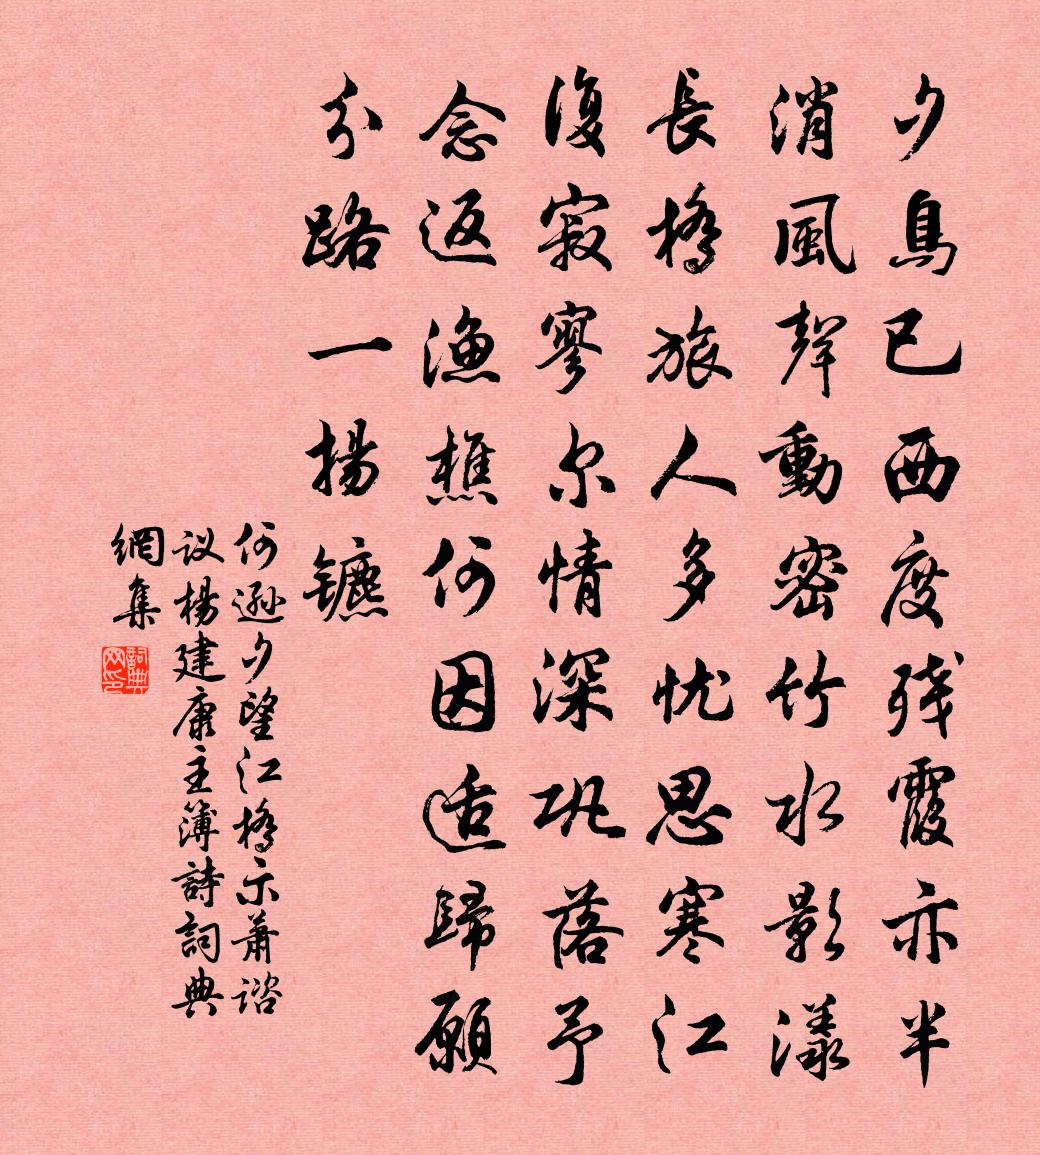 夕鳥已西度残霞亦半
消風聲動密竹水影漾
長橋旅人多忧思寒江
復寂寥尔情深巩落予
念返漁樵何因适歸願
分路一揚镳
何遜夕望江橋示蕭谘
议楊建康主簿詩詞典
網集
詞典網印